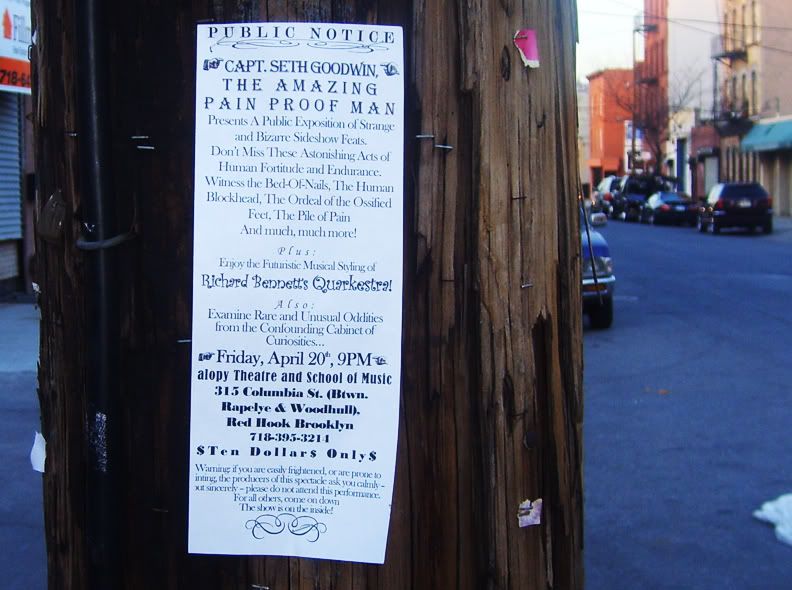 PUBLIC NOTICE
CAPT. SETH GOODWIN,
THE AMAZING
PAIN PROOF MAN
Presents A Public Exposition of Strange
and Bizarre Sideshow Feats.
Don't Miss These Astonishing Acts of
Human Fortitude and Endurance.
Witness the Bed-Of-Nails, The Human
Blockhead, The Ordeal of the Ossified
Feet, The Pile of Pain
And much, much more!
Plus:
Enjoy the Futuristic Musical Styling of
Richard Bennett's Quarkestra!
Also:
Examine Rare and Unusual Oddities
from the Confounding Cabinet of
Curiosities...
Friday, April 20th, 9PM
alopy Theatre and School of Music
315 Columbia St. (Btwn.
Rapelye & Woodhull),
Red Hook Brooklyn
718-395-3214
$Ten Dollar$ Only$
Warning: if you are easily frightened, or are prone to
inting, the producers of this spectacle ask you calmly –
out sincerely – please do not attend this performance.
For all others, come on down
The show is on the inside!